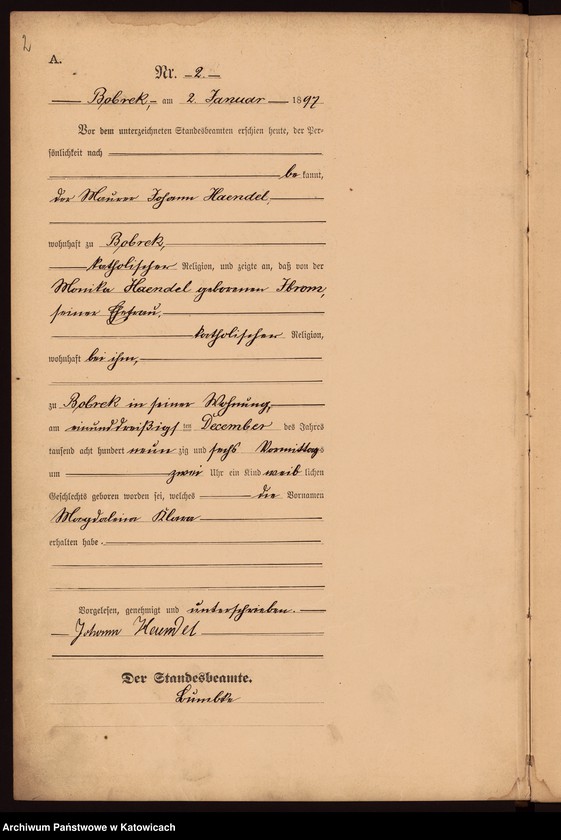 2
A.
Nr. 2.
Bobrek, am 2. Januar 1897
Vor dem unterzeichneten Standesbeamten erschien heute, der Per-
sönlichkeit nach
bekannt,
der Maurer Johann Haendel,
wohnhaft zu Bobrek,
katholischer Religion, und zeigte an, daß von der
Monika Haendel geborenen Ibrom,
seiner Ehefrau,
katholischer Religion,
wohnhaft bei ihm,
zu Bobrek in seiner Wohnung,
am einunddreißigsten December des Jahres
tausend acht hundert neunzig und sechs Vormittags
um zwei Uhr ein Kind weiblichen
Geschlechts geboren worden sei, welches die Vornamen
Magdalena Klara
erhalten habe.
Vorgelesen, genehmigt und unterschrieben.
Johann Heundel
Der Standesbeamte.
Lumbke
Archiwum Państwowe w Katowicach